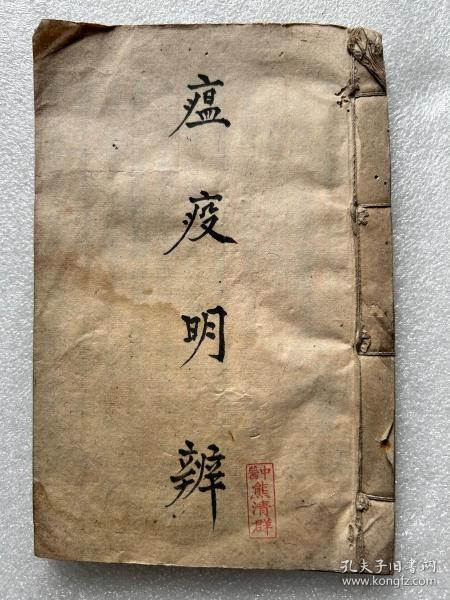 瘟疫明辨
中醫
熊清群
孔夫子旧书网
www.kongfz.com